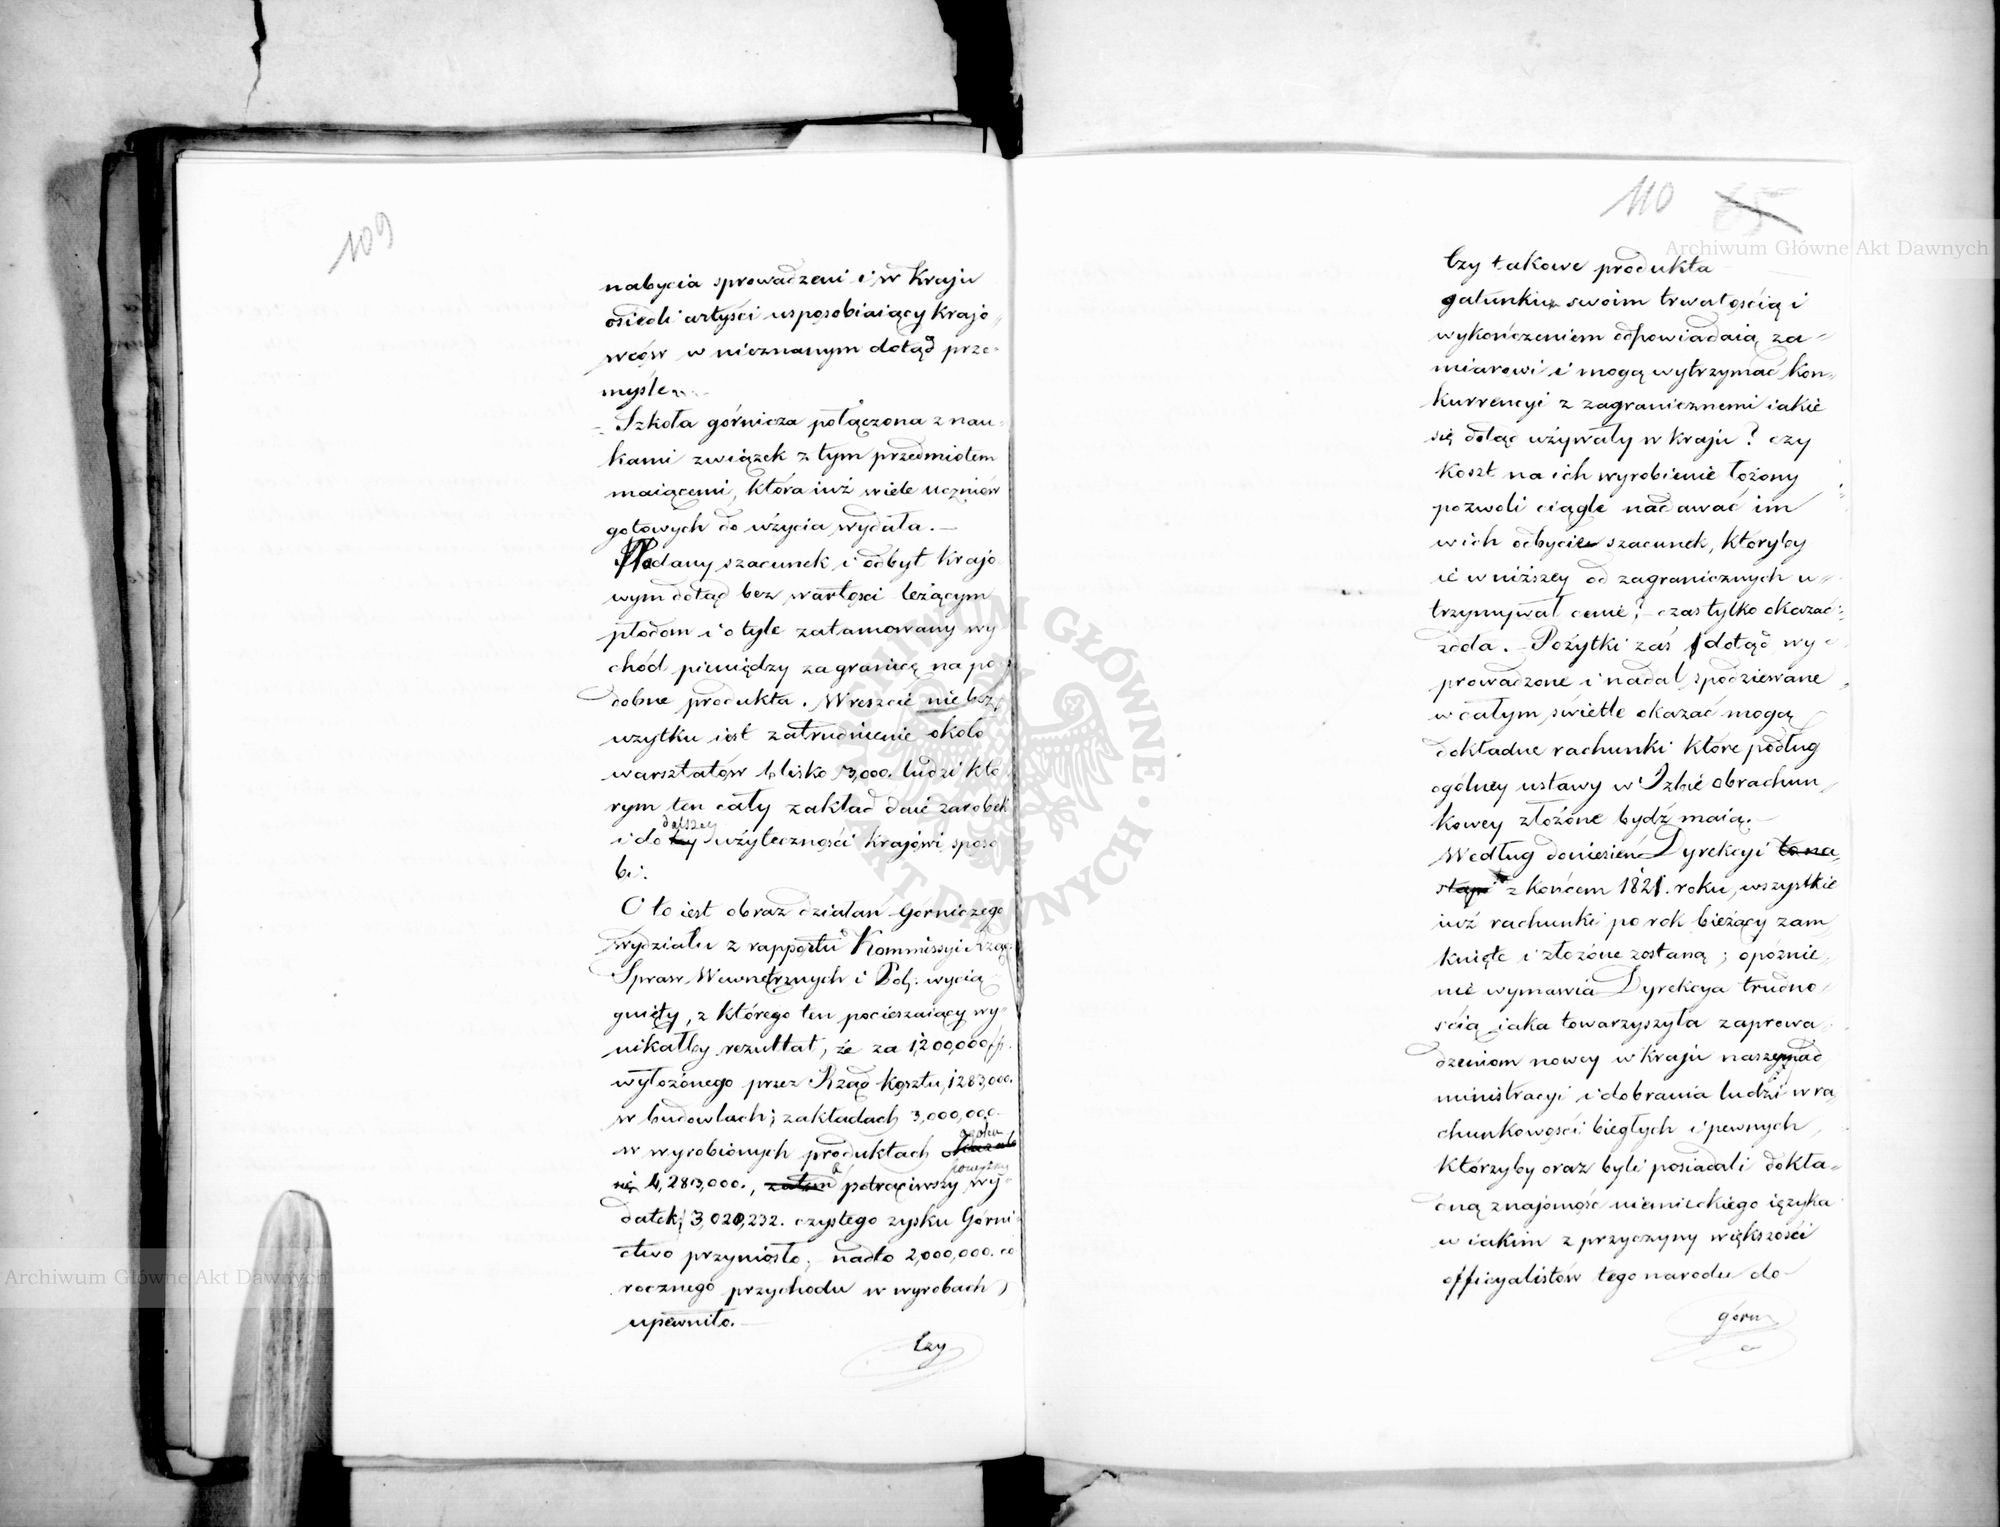 109
nabycia sprowadzeni i w Kraju
osiedli artyści usposobiaiący Krajo-
wców w nieznanym dotąd prze-
myśle
Szkoła górnicza połączona z nau-
kami związek z tym przedmiotem
maiącemi, która iuż wiele uczniów
gotowych do użycia wydała. –
Nadany szacunek i odbyt Krajo
wym dotąd bez wartości leżącym
płodom i o tyle zatamowany wy
chód pieniędzy za granicę na po-
dobne produkta. Wreszcie nie bez
uzytku iest zatrudnienie około
warsztatów blisko 3,000. ludzi któ
rym ten cały zakład daie zarobek
dalszey
i do tey użyteczności krajowi sposo
bi.
Oto iest obraz działań Górniczego
wydziału z rapportu Kommissyi Rząd:
Spraw Wewnętrznych i Polj: wycią
gnięty, z którego ten pocieszaiący wy-
nikałby rezultat, że za 1,200,000 fp.
wyłożonego przez Rząd kosztu, 1283,000.
w budowlach; zakładach 3,000,000.
ogółu
w wyrobionych produktach okazało
powyższy
się 4,283,000., zatem potrąciwszy wy-
datek, 3,020,232. czystego zysku Górni-
ctwo przyniosło, nadto 2,000,000. co
rocznego przychodu w wyrobach
upewniło. –
Czy
110 65
Czy takowe produkta
gatunkiem swoim trwałością i
wykończeniem odpowiadaią za-
miarowi i mogą wytrzymać kon-
kurrencyi z zagranicznemi iakie
się dotąd używały w kraju? czy
koszt na ich wyrobienie łożony
pozwoli ciągle nadawać im
w ich odbycie szacunek, któryby
ie w niższey od zagranicznych u-
trzymywał cenie? – czas tylko okazać
zdoła. – Pożytki zaś dotąd wy-
prowadzone i nadal spodziewane
w całym świetle okazać mogą
dokładne rachunki które podług
ogólney ustawy w Izbie obrachun
kowey złożone bydź maią. –
Według doniesień Dyrekcyi to na-
stąpi z końcem 1821. roku, wszystkie
iuż rachunki po rok bieżący zam
knięte i złożone zostaną; opóźnie-
nie wymawia Dyrekcya trudno-
ścią iaka towarzyszyła zaprowa
dzeniom nowey w kraju naszym ad
ministracyi i dobrania ludzi w ra
chunkowości biegłych i pewnych,
którzyby oraz byli posiadali dokła-
dną znajomość niemieckiego ięzyka
w iakim z przyczyny większości
officyalistów tego narodu do-
górn
Archiwum Główne Akt Dawnych
Archiwum Główne Akt Dawnych
ARCHIWUM GŁÓWNE · AKT DAWNYCH ·